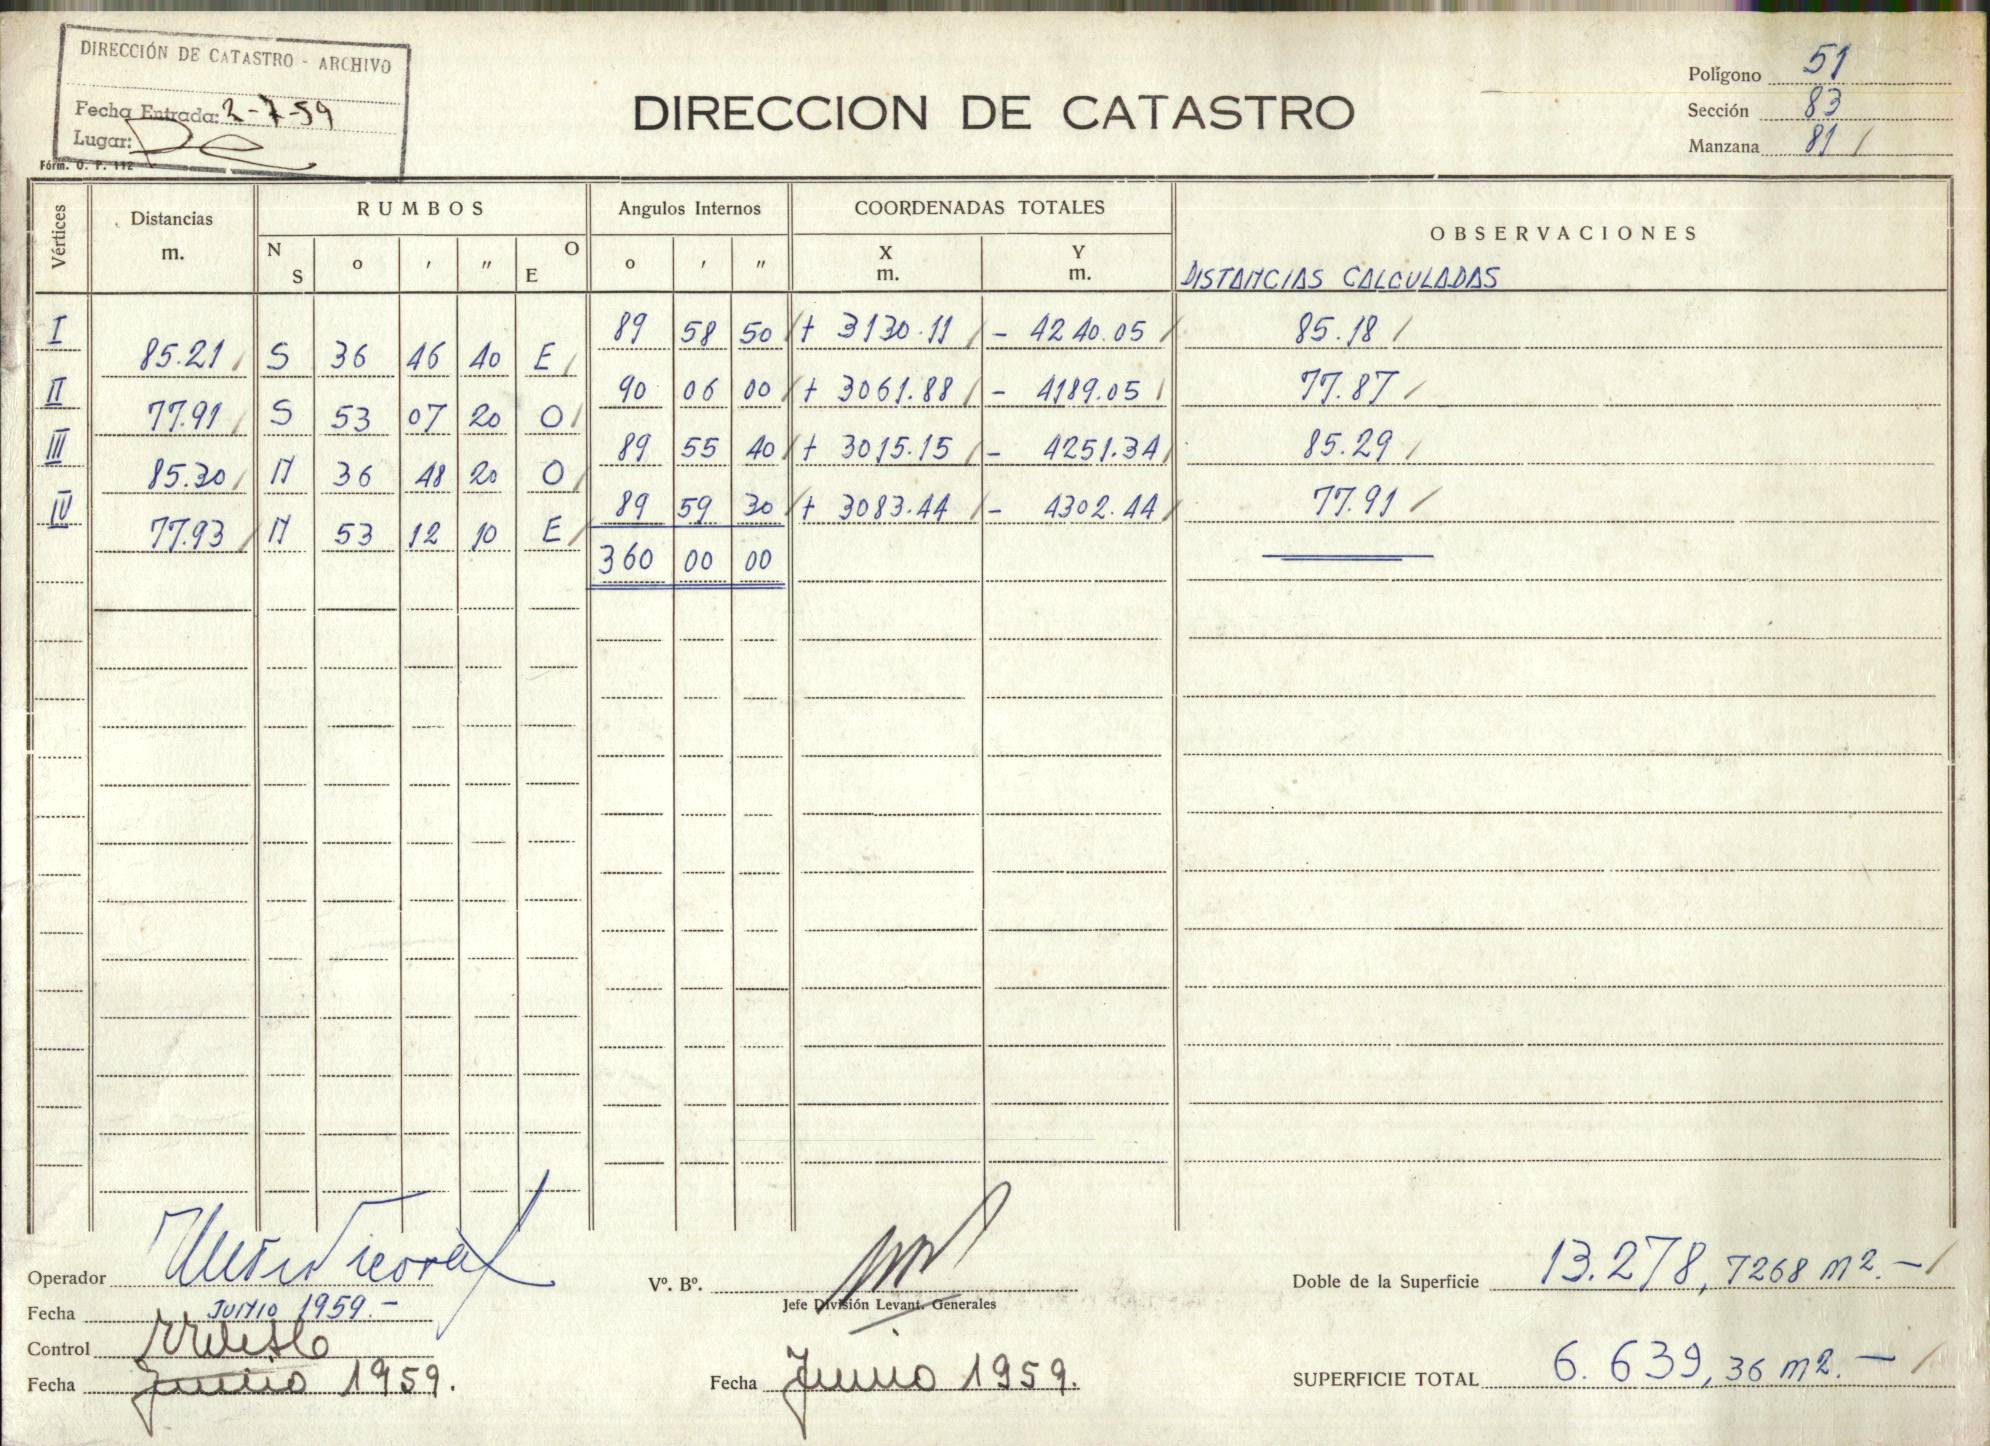 DIRECCIÓN DE CATASTRO - ARCHIVO
Fecha Entrada: 2-7-59
Lugar:
Fórm. O. P. 112
DIRECCION DE CATASTRO
Polígono 51
Sección 83
Manzana 81 /
Vértices Distancias m. RUMBOS Angulos Internos COORDENADAS TOTALES OBSERVACIONES
N S o ' " O E o ' " X m. Y m. DISTANCIAS CALCULADAS
I 89 58 50 / + 3130.11 / - 4240.05 / 85.18 /
85.21 / S 36 46 40 E /
II 90 06 00 / + 3061.88 / - 4189.05 / 77.87 /
77.91 / S 53 07 20 O /
III 89 55 40 / + 3015.15 / - 4251.34 / 85.29 /
85.30 / N 36 48 20 O /
IV 89 59 30 / + 3083.44 / - 4302.44 / 77.91 /
77.93 / N 53 12 10 E /
360 00 00
Operador
Fecha JUNIO 1959.-
Control
Fecha Junio 1959.
Vº. Bº.
Jefe División Levant. Generales
Fecha Junio 1959.
Doble de la Superficie 13.278,7268 m2.- /
SUPERFICIE TOTAL 6.639,36 m2.- /